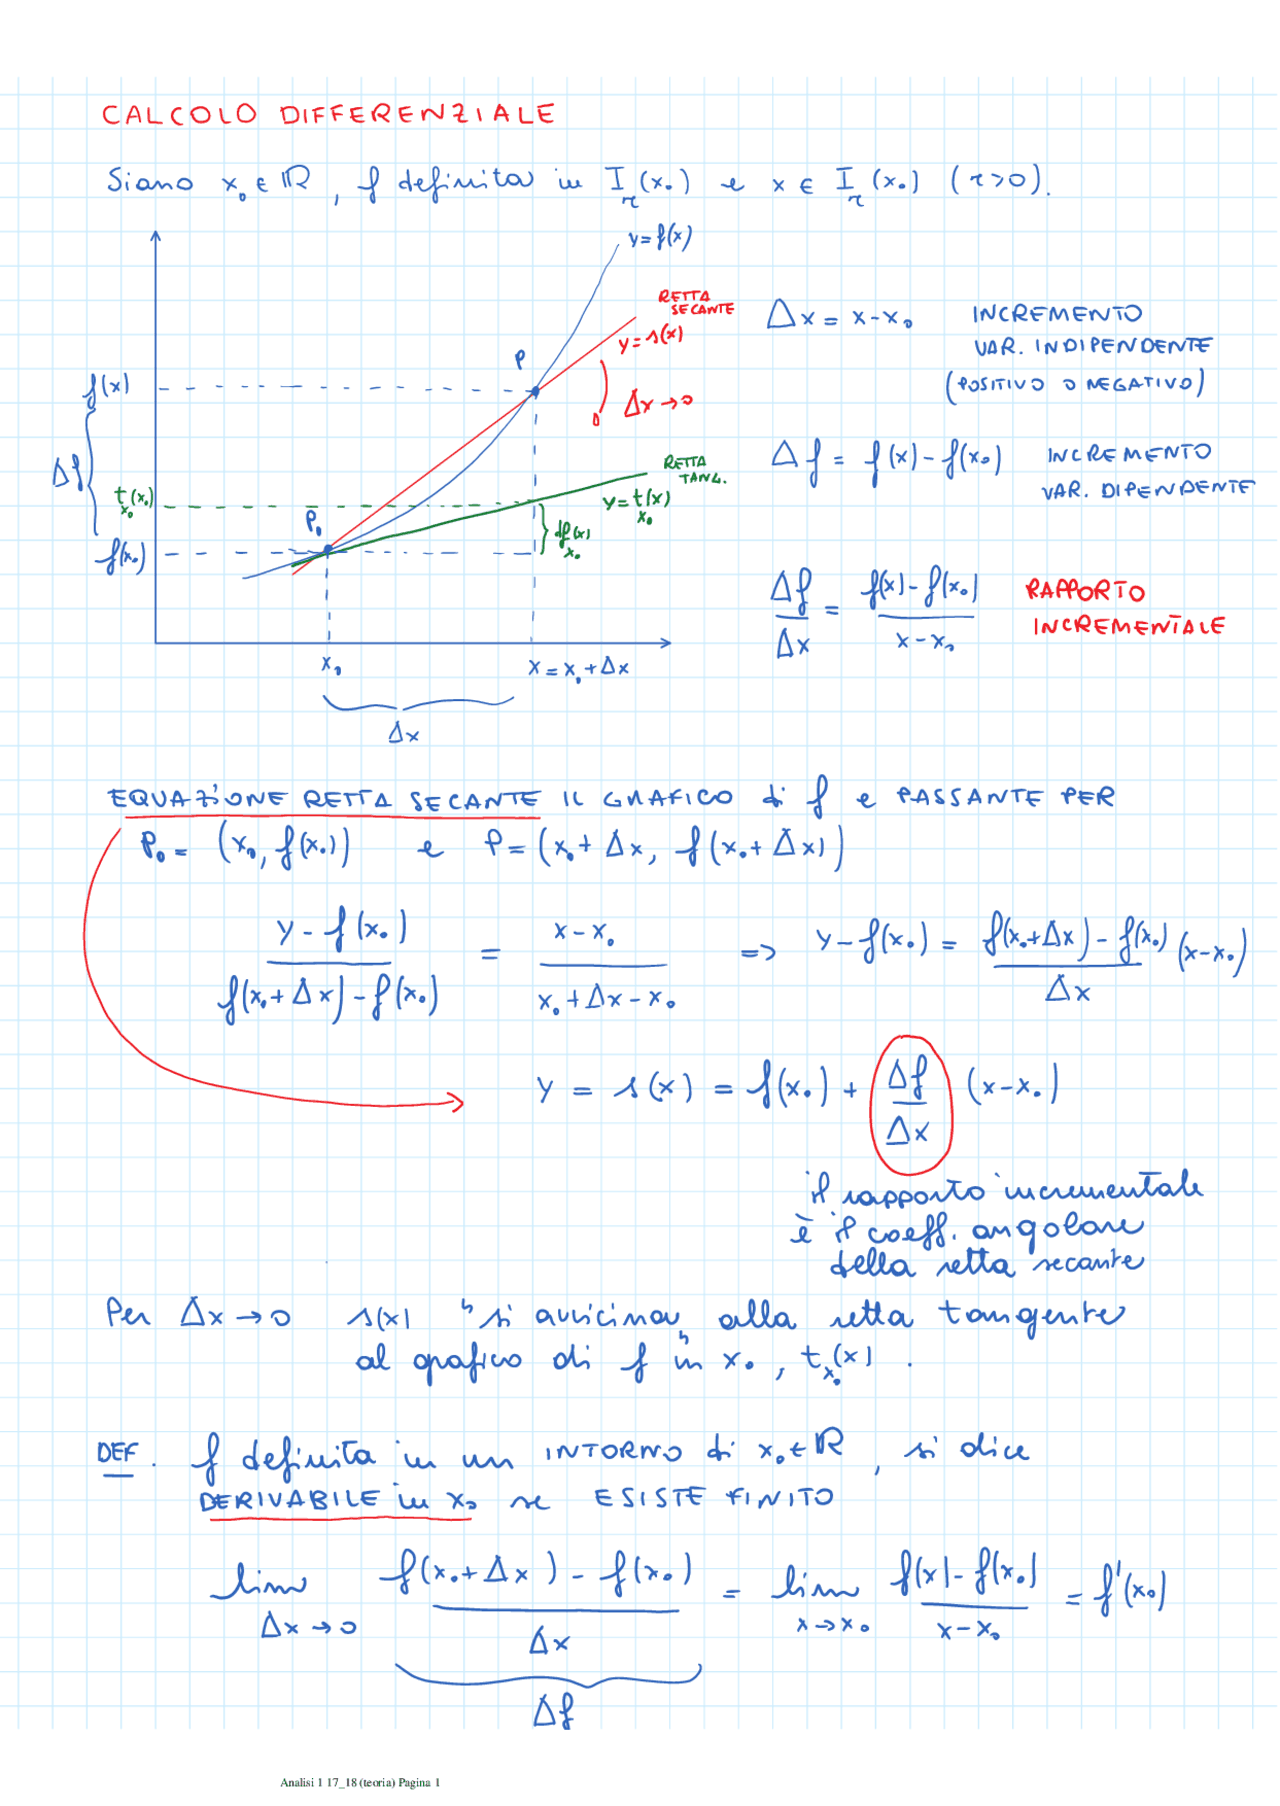 CALCOLO DIFFERENZIALE
Siano x₀ ∈ ℝ, f definita in I_r(x₀) e x ∈ I_r(x₀) (r>0).
y=f(x)
RETTA
SECANTE
y=s(x)
Δx = x-x₀ INCREMENTO
VAR. INDIPENDENTE
(POSITIVO O NEGATIVO)
P
f(x)
Δx→0
Δf
Δf = f(x)-f(x₀) INCREMENTO
VAR. DIPENDENTE
RETTA
TANG.
t_x₀(x)
y=t_x₀(x)
P₀
df_x₀(x)
f(x₀)
Δf/Δx = (f(x)-f(x₀))/(x-x₀) RAPPORTO
INCREMENTALE
x₀
x=x₀+Δx
Δx
EQUAZIONE RETTA SECANTE IL GRAFICO di f e PASSANTE PER
P₀=(x₀, f(x₀)) e P=(x₀+Δx, f(x₀+Δx))
(y-f(x₀))/(f(x₀+Δx)-f(x₀)) = (x-x₀)/(x₀+Δx-x₀) => y-f(x₀) = (f(x₀+Δx)-f(x₀))/Δx (x-x₀)
y = s(x) = f(x₀) + Δf/Δx (x-x₀)
il rapporto incrementale
è il coeff. angolare
della retta secante
Per Δx→0 s(x) "si avvicina" alla retta tangente
al grafico di f in x₀, t_x₀(x).
DEF. f definita in un INTORNO di x₀∈ℝ, si dice
DERIVABILE in x₀ se ESISTE FINITO
lim Δx→0 (f(x₀+Δx)-f(x₀))/Δx = lim x→x₀ (f(x)-f(x₀))/(x-x₀) = f'(x₀)
Δf
Analisi 1 17_18 (teoria) Pagina 1